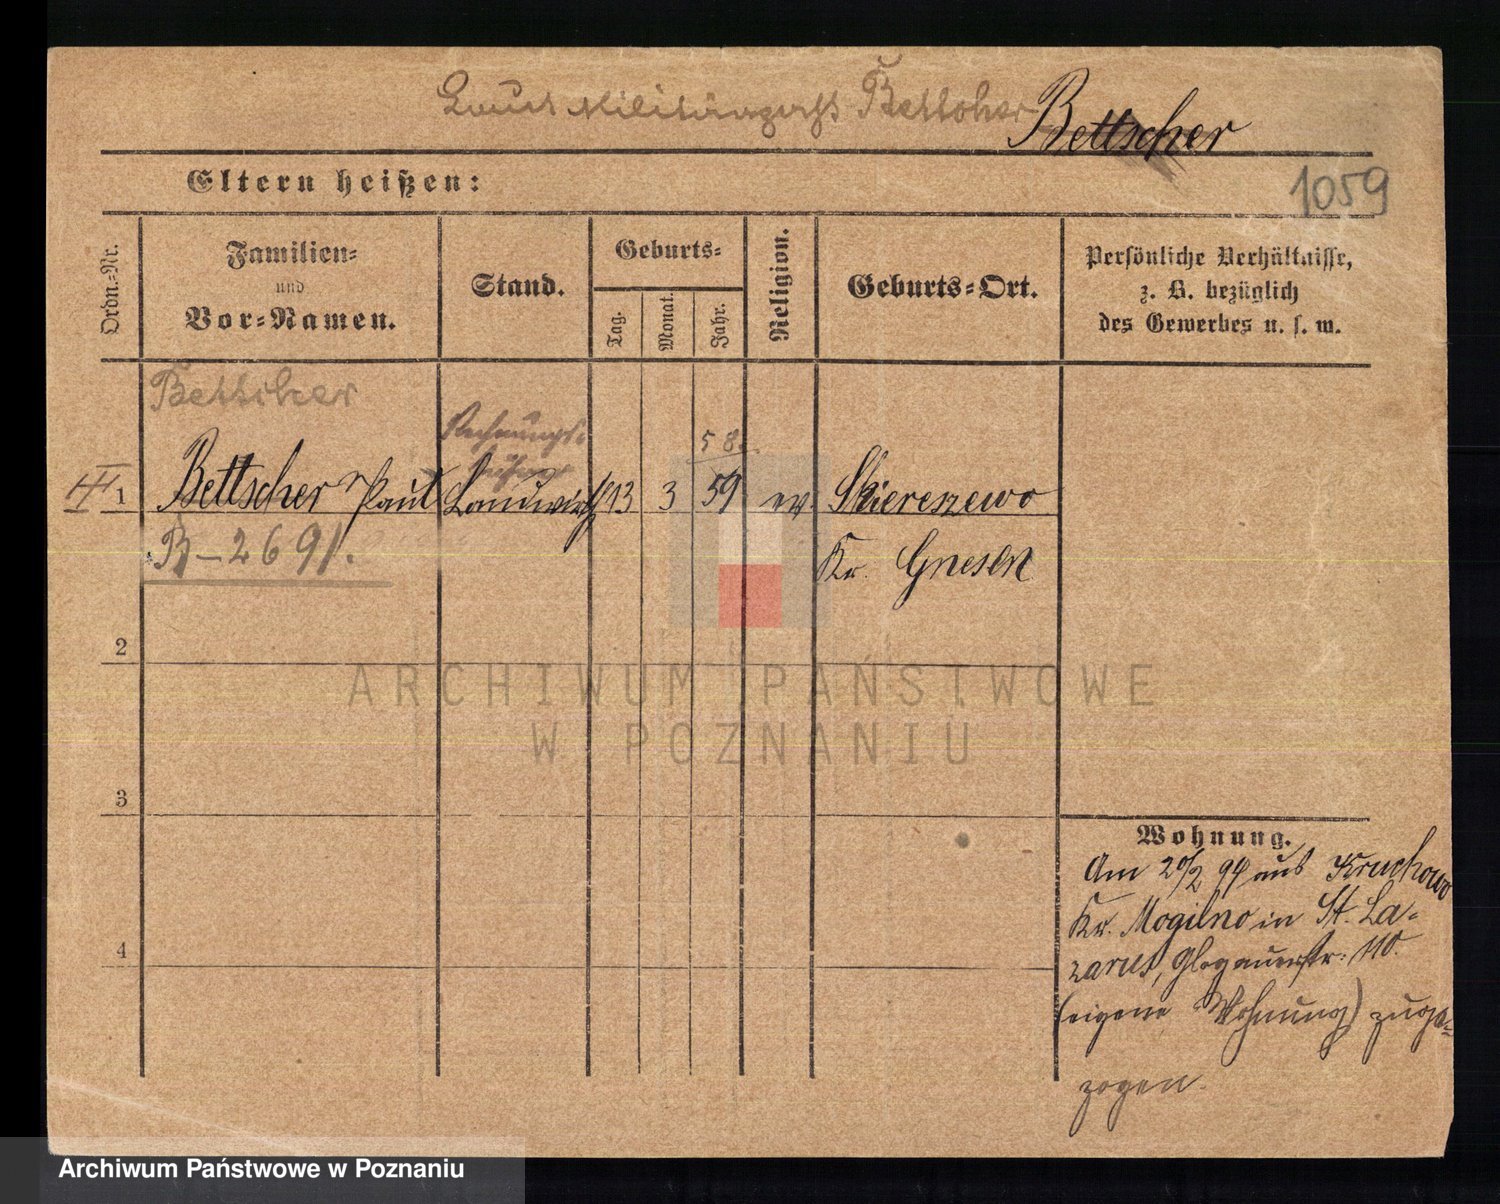 Laut Militärpaß Bettcher Bettscher
Eltern heißen:
1059
Ordn.-Nr.
Familien-
und
Vor-Namen.
Stand.
Geburts-
Tag.
Monat.
Jahr.
Religion.
Geburts-Ort.
Persönliche Verhältnisse,
z. B. bezüglich
des Gewerbes u. s. w.
Rechnungs-
58.
1 Bettscher Paul Landwirth 13 3 59 ev. Skiereszewo
B-2691.
Kr. Gnesen
2
3
4
Wohnung.
Am 20/2 94 aus Kruchowo
Kr. Mogilno in St. La-
zarus, Glogauerstr. 110.
(eigene Wohnung) zuge-
zogen.
ARCHIWUM PAŃSTWOWE
W POZNANIU
Archiwum Państwowe w Poznaniu